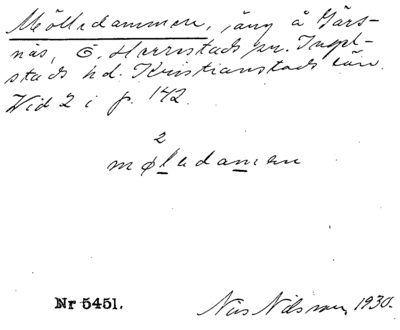 Mölledammen, äng å Gärs-
näs, Ö. Herrestads sn. Ingel-
stads hd. Kristianstads län.
Vid 2 i f. 142.
2
møledamen
Nr 5451.
Nils Nilsson, 1930.